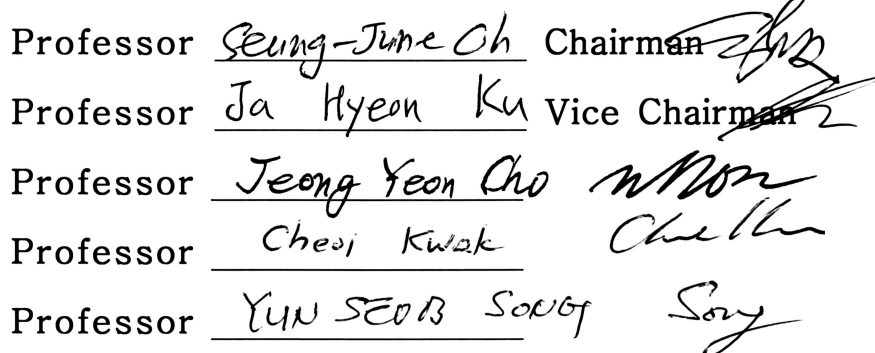 Professor Seung-June Oh Chairman
Professor Ja Hyeon Ku Vice Chairman
Professor Jeong Yeon Cho
Professor Cheol Kwak
Professor YUN SEOB SONG Song